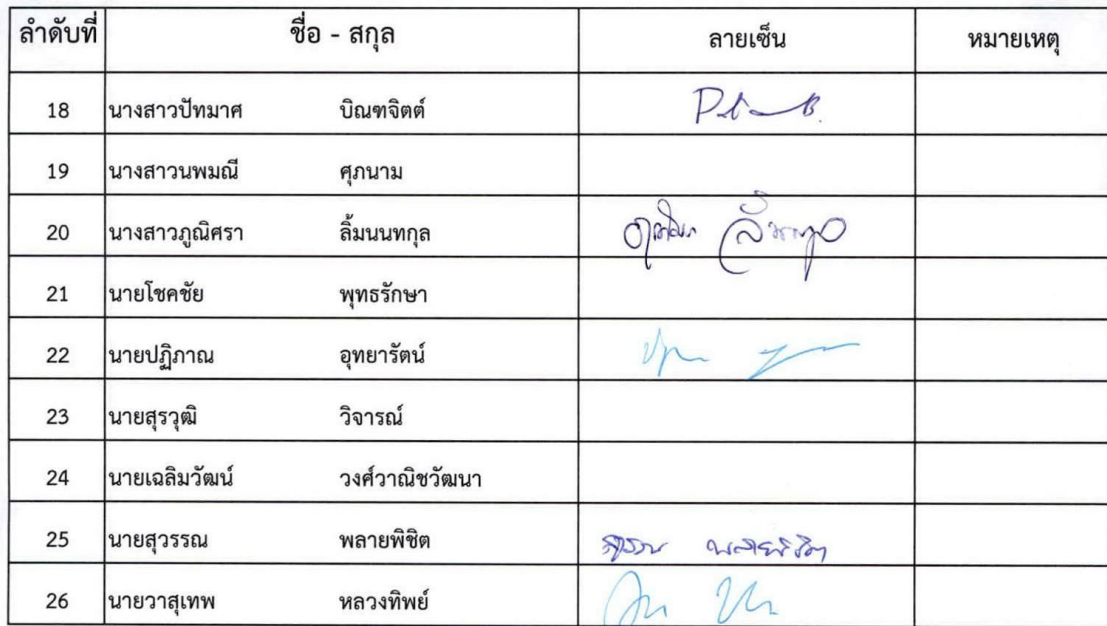 ลำดับที่ ชื่อ - สกุล ลายเซ็น หมายเหตุ
18 นางสาวปัทมาศ บิณฑจิตต์
19 นางสาวนพมณี ศุภนาม
20 นางสาวภูณิศรา ลิ้มนนทกุล
21 นายโชคชัย พุทธรักษา
22 นายปฏิภาณ อุทยารัตน์
23 นายสุรวุฒิ วิจารณ์
24 นายเฉลิมวัฒน์ วงศ์วาณิชวัฒนา
25 นายสุวรรณ พลายพิชิต สุวรรณ พลายพิชิต
26 นายวาสุเทพ หลวงทิพย์